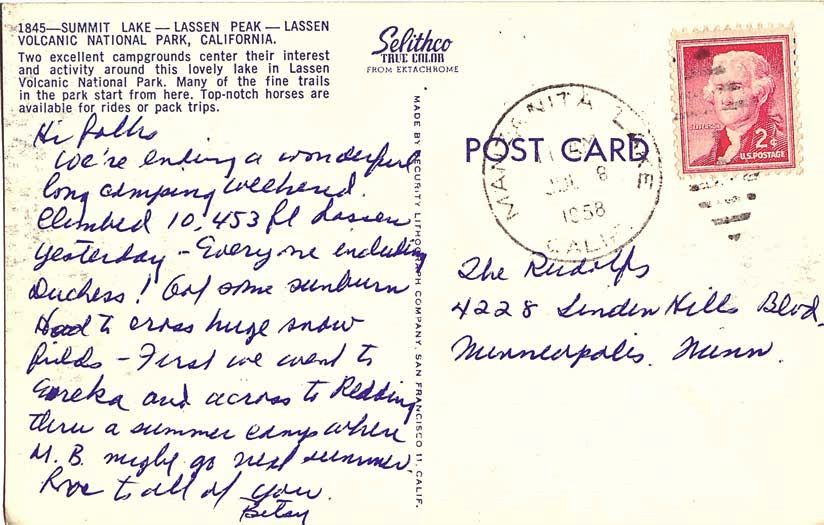 1845—SUMMIT LAKE — LASSEN PEAK — LASSEN
VOLCANIC NATIONAL PARK, CALIFORNIA.
Two excellent campgrounds center their interest
and activity around this lovely lake in Lassen
Volcanic National Park. Many of the fine trails
in the park start from here. Top-notch horses are
available for rides or pack trips.
Hi Folks
We're ending a wonderful
long camping weekend.
Climbed 10,453 ft Lassen
yesterday - Everyone including
Duchess! Got some sunburn
Had to cross huge snow
fields - First we went to
Eureka and across to Redding
thru a summer camp where
M. B. might go next summer.
Love to all of you.
Betsy
Selithco
TRUE COLOR
FROM EKTACHROME
MADE BY SECURITY LITHOGRAPH COMPANY, SAN FRANCISCO 11, CALIF.
POST CARD
MANZANITA LAKE
JUL 8
1958
CALIF
JEFFERSON
2¢
U.S. POSTAGE
The Rudolfs
4228 Linden Hills Blvd.
Minneapolis, Minn.